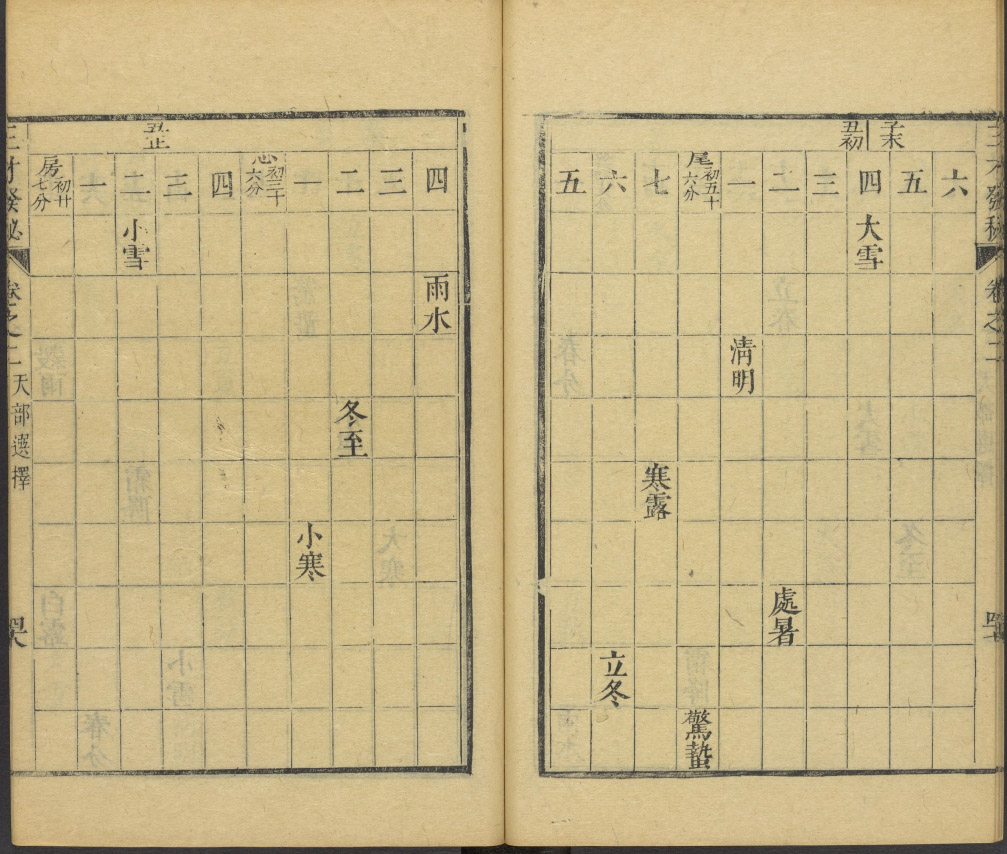 三才發秘
卷之二
子末
丑初
六
五
四 大雪
三
二 處暑
一 清明
尾 初五十六分 驚蟄
七 寒露
六 立冬
五
丑正
四 雨水
三
二 冬至
一 小寒
心 初三十六分
四
三
二 小雪
一
房 初廿七分
三才發秘
卷之二
天部選擇